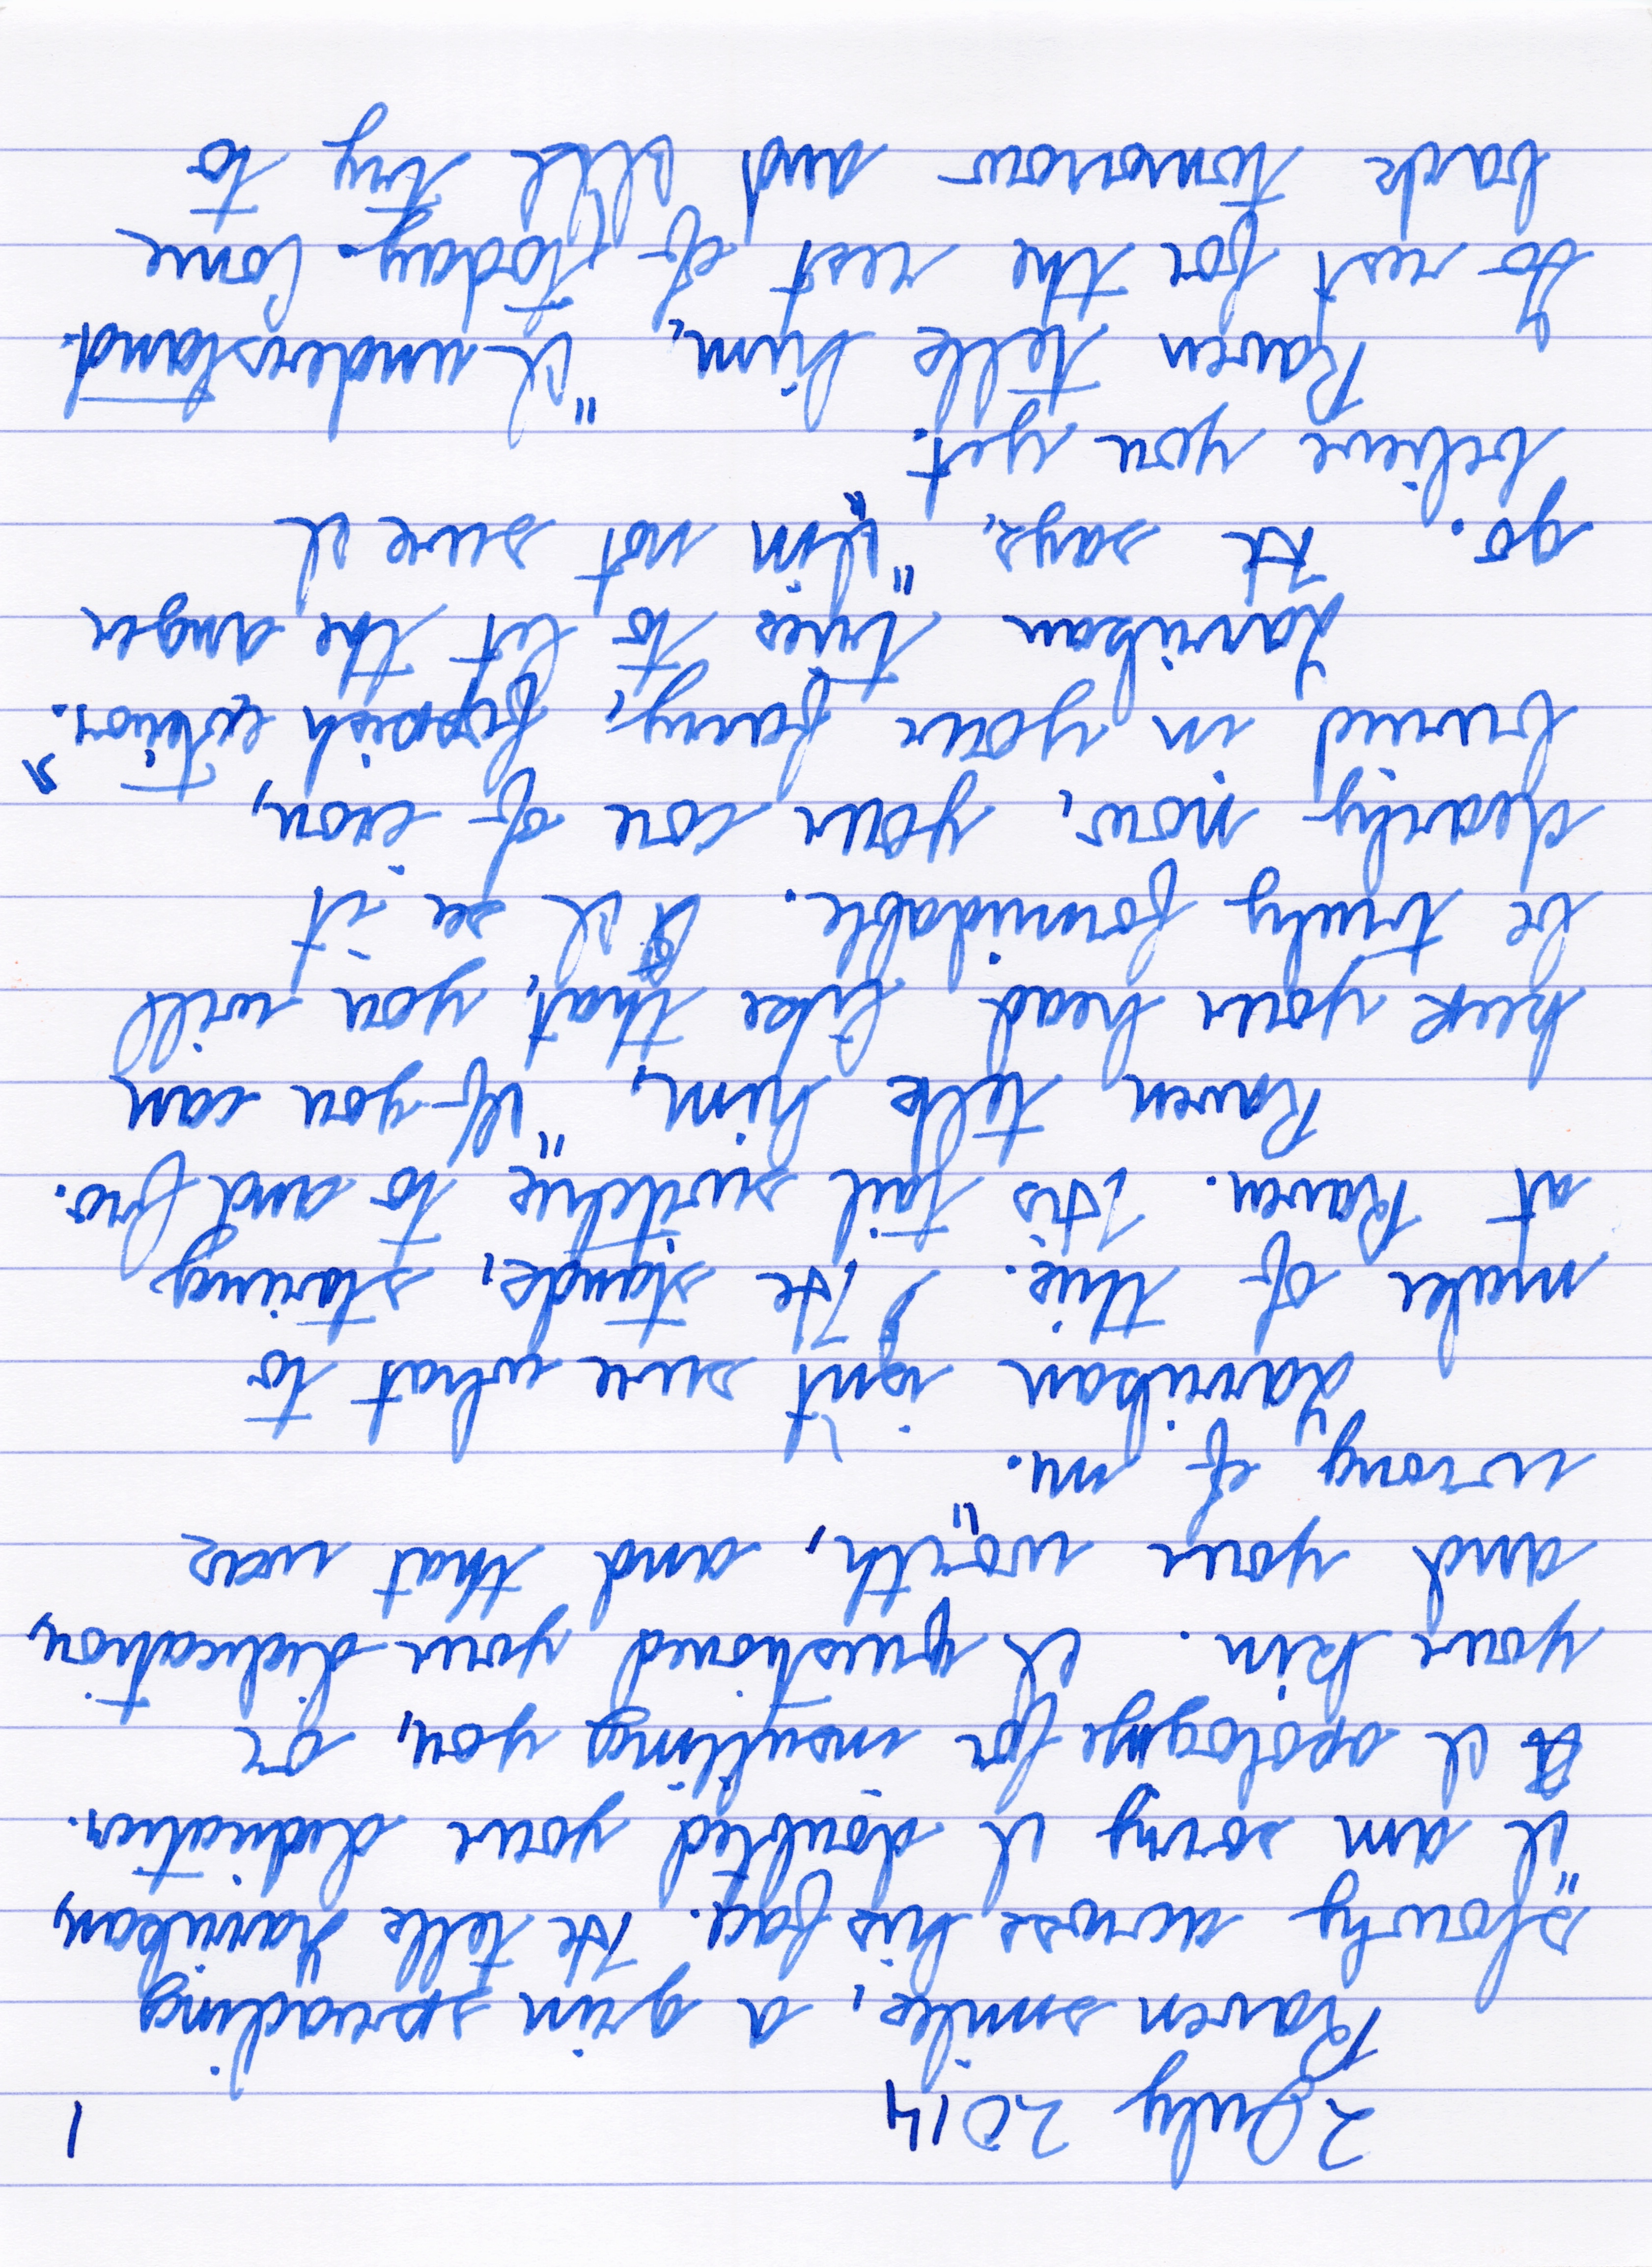 2 July 2014 1
Raven smiles, a grin spreading
slowly across his face. He tells Harrikan,
"I am sorry I doubted your dedication.
I apologize for insulting you, or
your kin. I questioned your dedication,
and your worth, and that was
wrong of me."
Harrikan isn't sure what to
make of this. He stands, staring
at Raven. His tail switches to and fro.
Raven tells him, "If you can
keep your head like that, you will
be truly formidable. I see it
clearly, now, your core of iron,
buried in your fancy, foppish exterior."
Harrikan tries to let the anger
go. He says, "I'm not sure I
believe you yet."
Raven tells him, "I understand.
Go rest for the rest of today. Come
back tomorrow and I'll try to